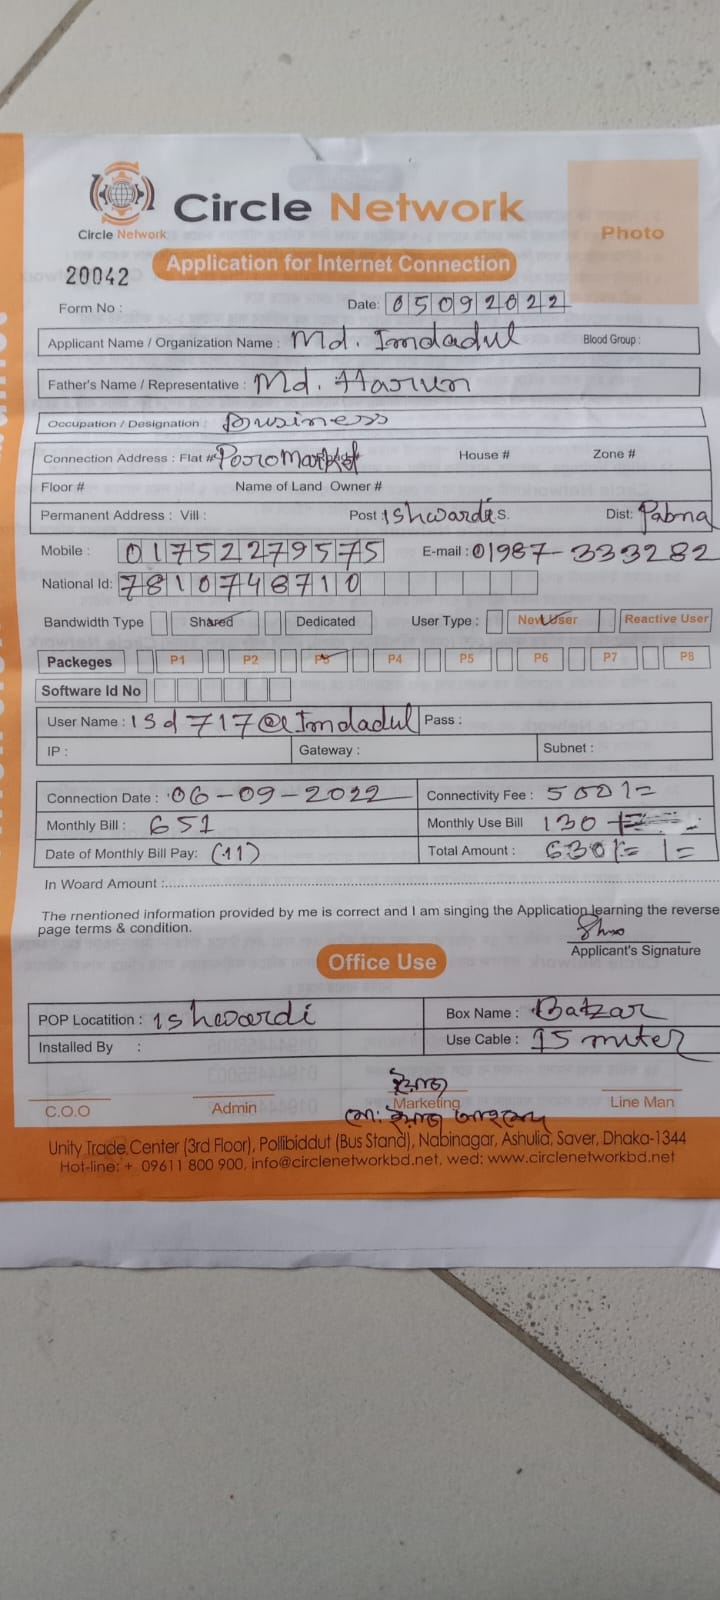 Circle Network
Circle Network
Photo
Application for Internet Connection
20042
Form No :
Date: 05092022
Applicant Name / Organization Name : Md. Imdadul Blood Group :
Father's Name / Representative : Md. Harun
Occupation / Designation : Business
Connection Address : Flat # Pooro Market House # Zone #
Floor # Name of Land Owner #
Permanent Address : Vill : Post : Ishwardi S. Dist: Pabna
Mobile : 01752279575 E-mail : 01987-333282
National Id: 7810748710
Bandwidth Type Shared Dedicated User Type : New User Reactive User
Packeges P1 P2 P3 P4 P5 P6 P7 P8
Software Id No
User Name : isd717@Imdadul Pass :
IP : Gateway : Subnet :
Connection Date : 06-09-2022 Connectivity Fee : 500/=
Monthly Bill : 651 Monthly Use Bill 130
Date of Monthly Bill Pay: (11) Total Amount : 630/= /=
In Woard Amount :
The rnentioned information provided by me is correct and I am singing the Application learning the reverse
page terms & condition.
Applicant's Signature
Office Use
POP Locatition : ishwardi Box Name : Batzar
Installed By : Use Cable : 15 miter
C.O.O Admin Marketing Line Man
Unity Trade Center (3rd Floor), Pollibiddut (Bus Stand), Nabinagar, Ashulia, Saver, Dhaka-1344
Hot-line: + 09611 800 900, info@circlenetworkbd.net, wed: www.circlenetworkbd.net